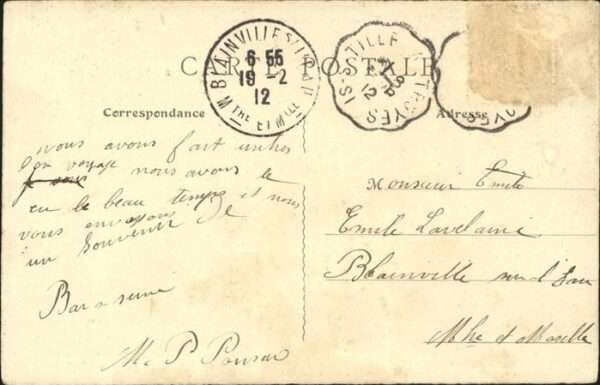 CARTE POSTALE
BLAINVILLE S/ L'EAU
6 55
19 -2
12
MTHE ET MLLE
IS-S-TILLE A TROYES
18
12
OYES
Correspondance
Adresse
nous avons fait un bon
voyage nous avons
eu le beau temps et nous
vous envoyons
un souvenir de
Bar s seine
M P Ponsar
Monsieur Emile
Emile Lavelaine
Blainville sur l'Eau
Mthe et Moselle